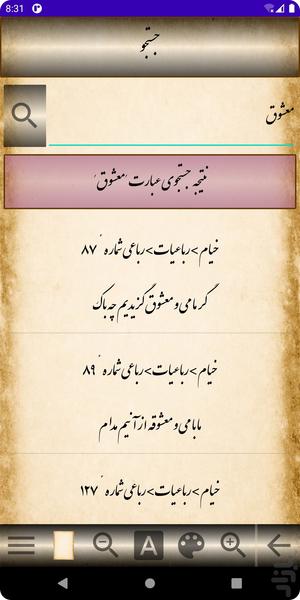 8:31
جستجو
معشوق
نتیجه جستجوی عبارت 'معشوق'
خیام>رباعیات>رباعی شماره ٔ ۸۷
گر ما می و معشوق گزیدیم چه باک
خیام>رباعیات>رباعی شماره ٔ ۸۹
ما با می و معشوقه از آنیم مدام
خیام>رباعیات>رباعی شماره ٔ ۱۲۷
A